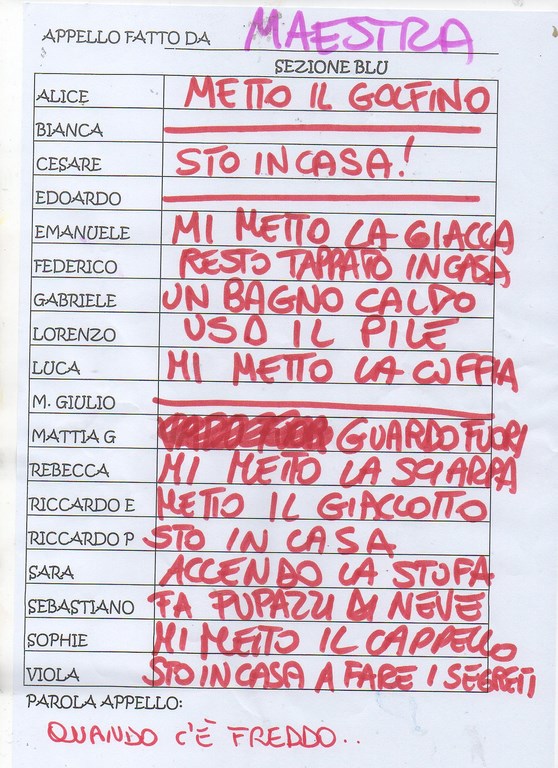 APPELLO FATTO DA MAESTRA
SEZIONE BLU
ALICE METTO IL GOLFINO
BIANCA
CESARE STO IN CASA!
EDOARDO
EMANUELE MI METTO LA GIACCA
FEDERICO RESTO TAPPATO IN CASA
GABRIELE UN BAGNO CALDO
LORENZO USO IL PILE
LUCA MI METTO LA CUFFIA
M. GIULIO
MATTIA G GUARDO FUORI
REBECCA MI METTO LA SCIARPA
RICCARDO E METTO IL GIACCOTTO
RICCARDO P STO IN CASA
SARA ACCENDO LA STUFA
SEBASTIANO FA PUPAZZI DI NEVE
SOPHIE MI METTO IL CAPPELLO
VIOLA STO IN CASA A FARE I SEGRETI
PAROLA APPELLO:
QUANDO C'È FREDDO..